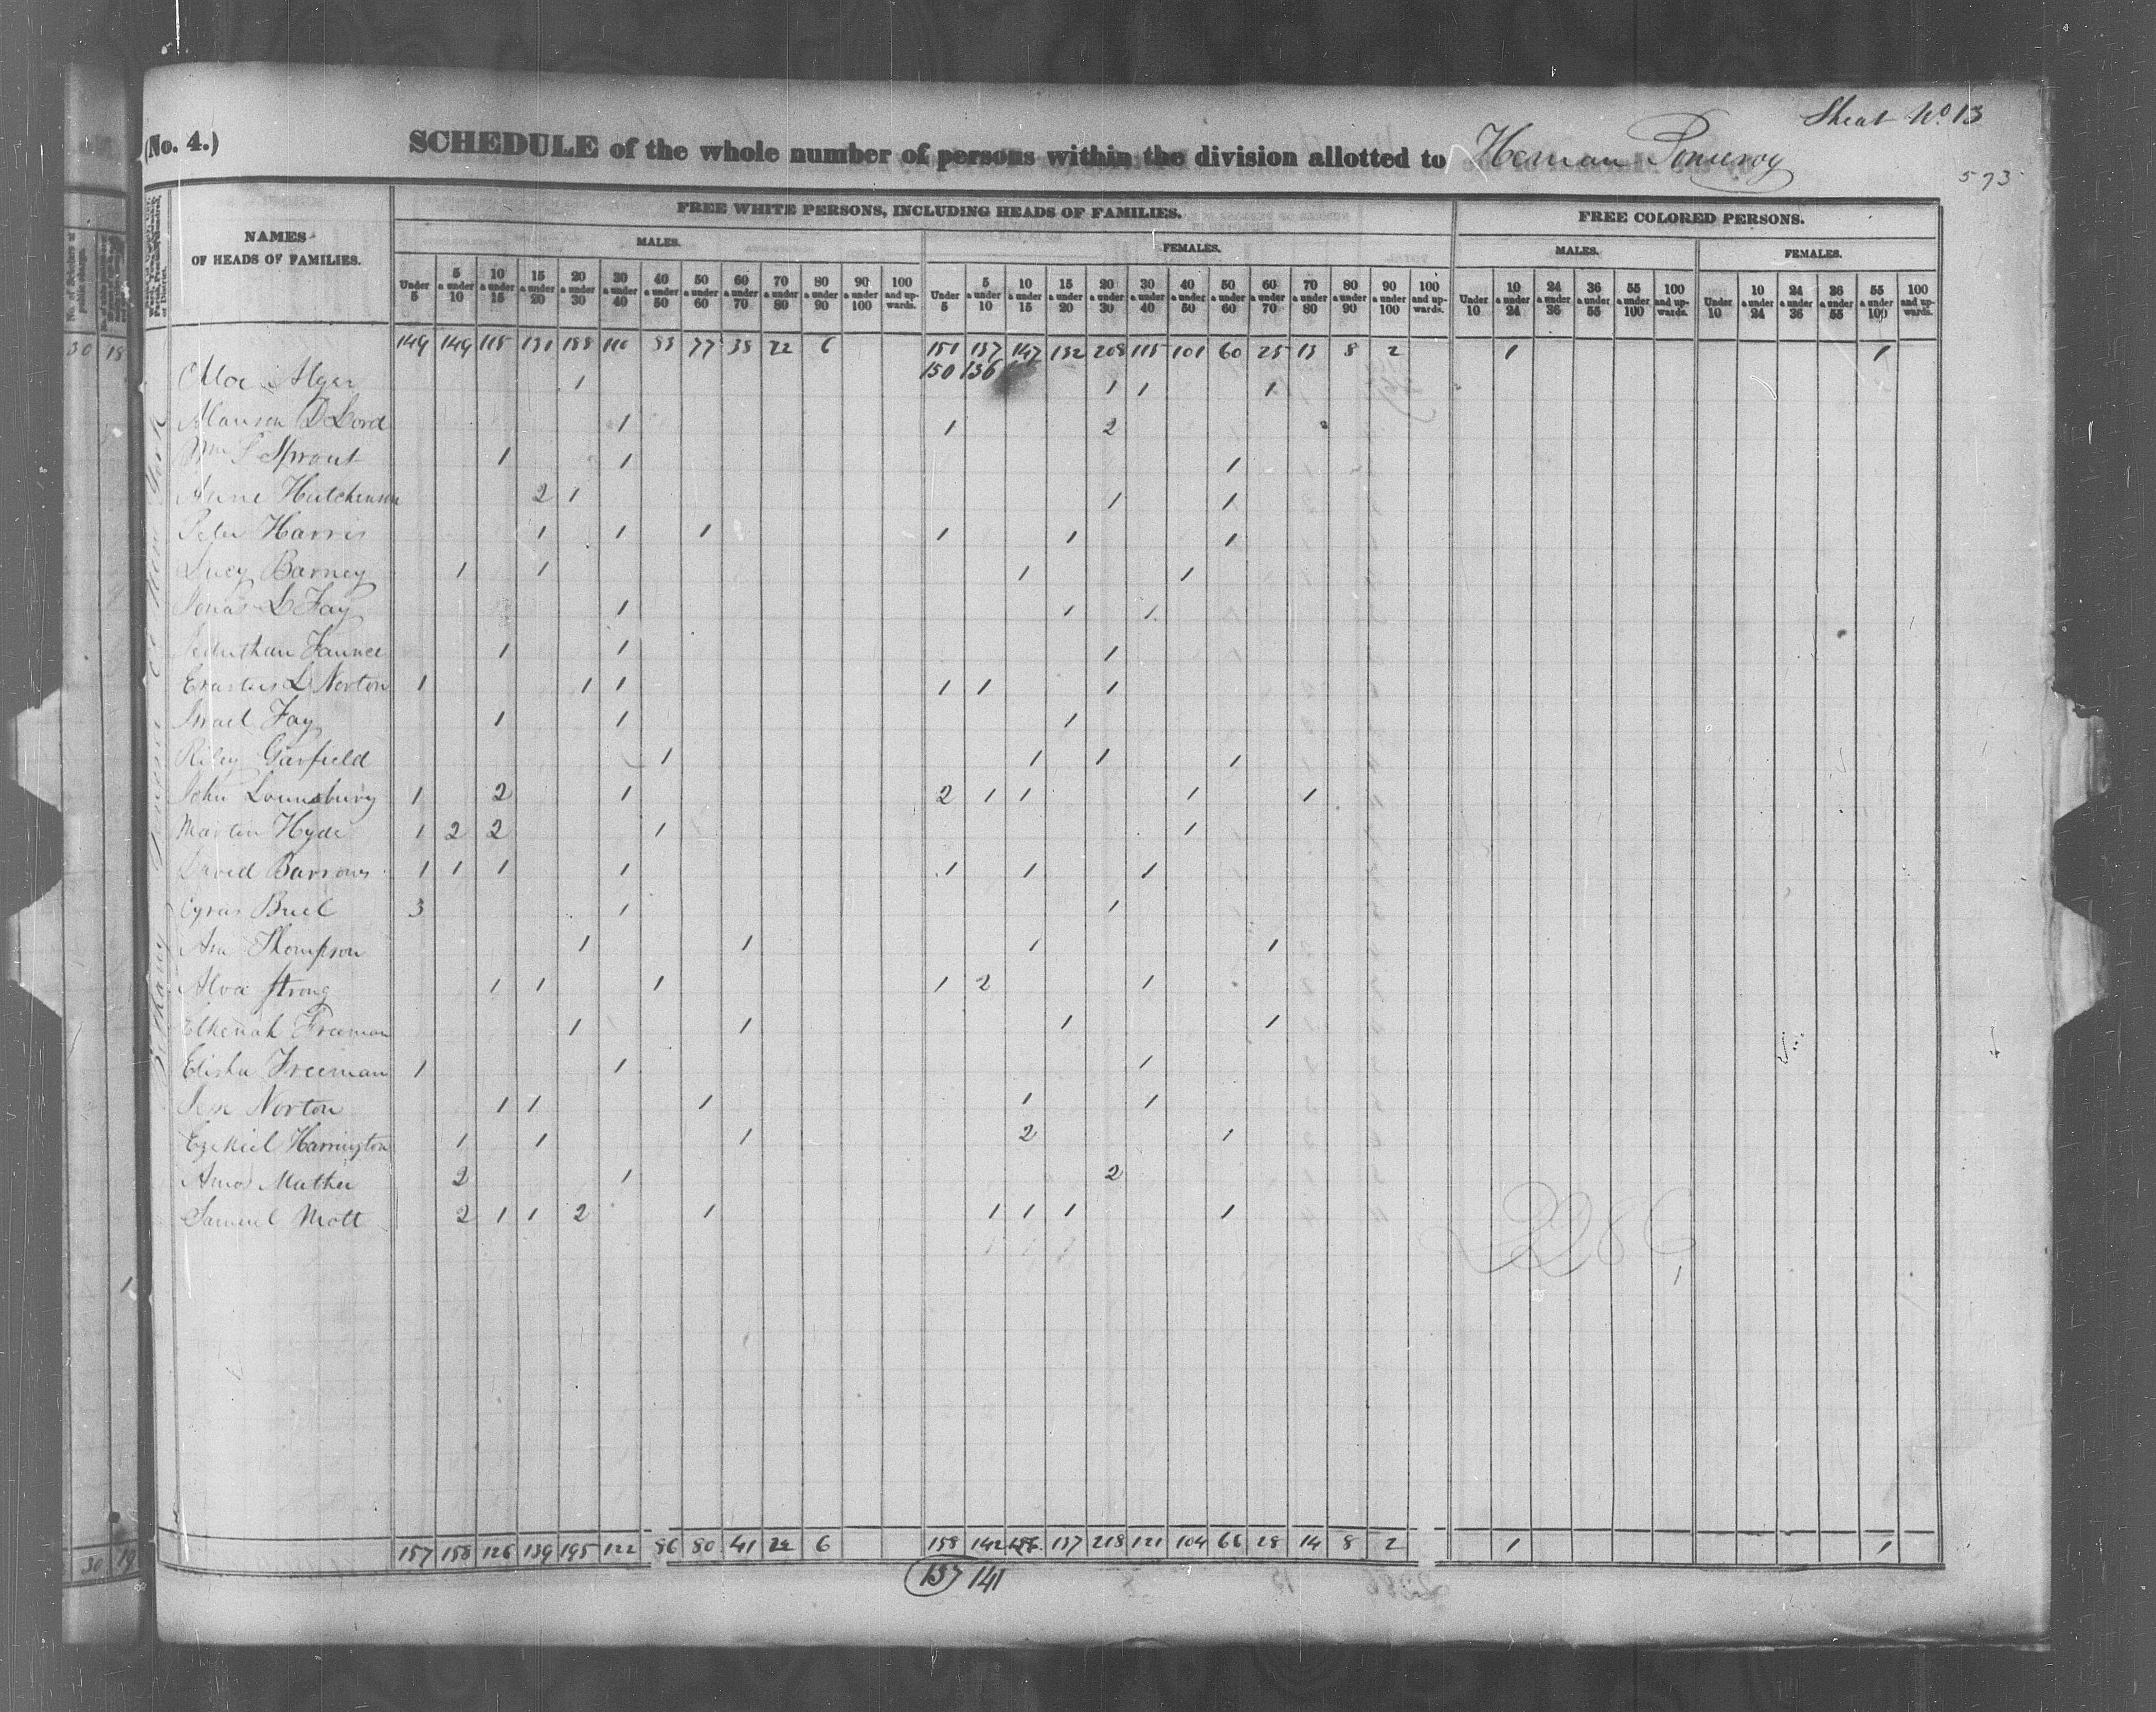 Sheat No 13
(No. 4.) SCHEDULE of the whole number of persons within the division allotted to Heman Pomeroy
573
NAMES OF HEADS OF FAMILIES.
FREE WHITE PERSONS, INCLUDING HEADS OF FAMILIES. FREE COLORED PERSONS.
MALES. FEMALES. MALES. FEMALES.
Under 5 | 5 & under 10 | 10 & under 15 | 15 & under 20 | 20 & under 30 | 30 & under 40 | 40 & under 50 | 50 & under 60 | 60 & under 70 | 70 & under 80 | 80 & under 90 | 90 & under 100 | 100 and upwards. | Under 5 | 5 & under 10 | 10 & under 15 | 15 & under 20 | 20 & under 30 | 30 & under 40 | 40 & under 50 | 50 & under 60 | 60 & under 70 | 70 & under 80 | 80 & under 90 | 90 & under 100 | 100 and upwards. | Under 10 | 10 & under 24 | 24 & under 36 | 36 & under 55 | 55 & under 100 | 100 and upwards. | Under 10 | 10 & under 24 | 24 & under 36 | 36 & under 55 | 55 & under 100 | 100 and upwards.
30 18
149 149 115 131 188 110 83 77 38 22 6 151 137 147 132 208 115 101 60 25 13 8 2 1 1
150 136
Chloe Alger 1 1 1 1
Alanson D Lord 1 1 2
Wm S Sprout 1 1 1
Anne Hutchenson 2 1 1 1
Peter Harris 1 1 1 1 1 1
Lucy Barney 1 1 1 1
Jonas L Fay 1 1 1
Jeduthan Faunce 1 1 1
Erastus L Norton 1 1 1 1 1 1
Israel Fay 1 1 1
Riley Garfield 1 1 1 1
John Lounsbury 1 2 1 2 1 1 1 1
Martin Hyde 1 2 2 1 1
David Barrows 1 1 1 1 1 1 1
Cyrus Buel 3 1 1
Asa Thompson 1 1 1 1
Alva Strong 1 1 1 1 2 1
Elkenah Freeman 1 1 1 1
Elisha Freeman 1 1 1
Jesse Norton 1 1 1 1 1
Ezekiel Harrington 1 1 1 2 1
Amos Mather 2 1 2
Samuel Mott 2 1 1 2 1 1 1 1 1
Bethany Genesee Co New York
2286
30 19
157 158 126 139 195 122 86 80 41 22 6 158 142 156 137 218 121 104 66 28 14 8 2 1 1
157 141